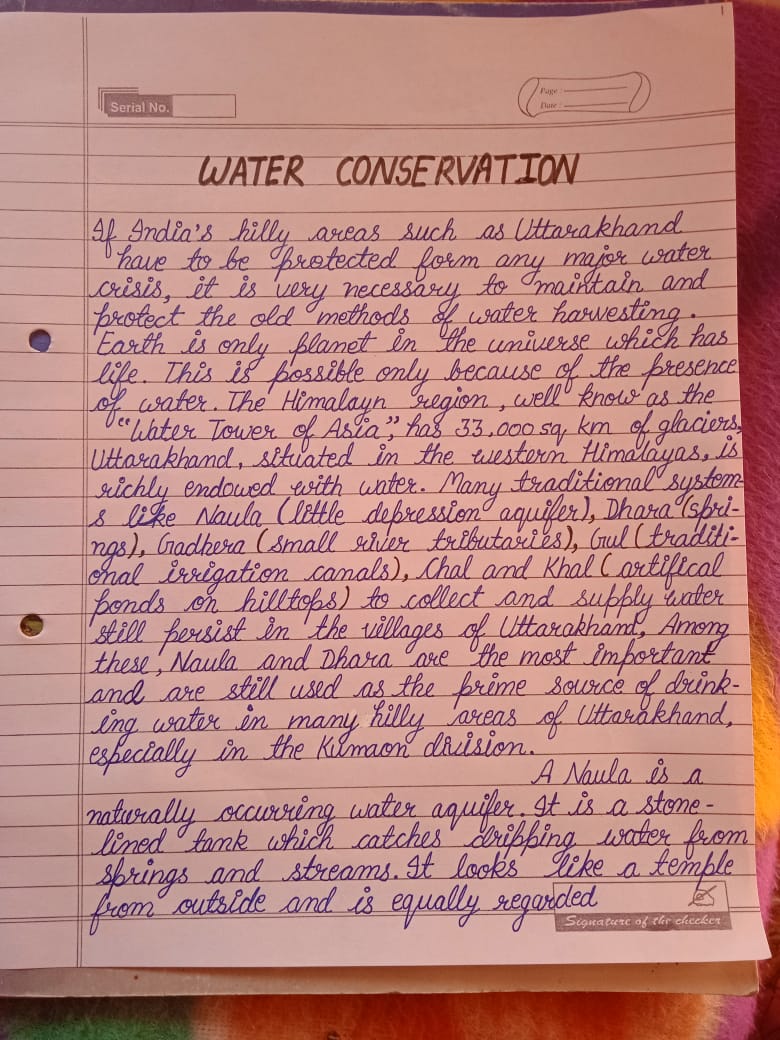 1
Serial No.
Page :
Date :
WATER CONSERVATION
If India's hilly areas such as Uttarakhand
have to be protected form any major water
crisis, it is very necessary to maintain and
protect the old methods of water harvesting.
Earth is only planet in the universe which has
life. This is possible only because of the presence
of water. The Himalayn region, well know as the
"Water Tower of Asia", has 33,000 sq km of glaciers,
Uttarakhand, situated in the western Himalayas, is
richly endowed with water. Many traditional system-
s like Naula (little depression aquifer), Dhara (spri-
ngs), Gadhera (small river tributaries), Gul (traditi-
onal irrigation canals), Chal and Khal (artifical
ponds on hilltops) to collect and supply water
still persist in the villages of Uttarakhand, Among
these, Naula and Dhara are the most important
and are still used as the prime source of drink-
ing water in many hilly areas of Uttarakhand,
especially in the Kumaon division.
A Naula is a
naturally occurring water aquifer. It is a stone-
lined tank which catches dripping water from
springs and streams. It looks like a temple
from outside and is equally regarded
Signature of the checker